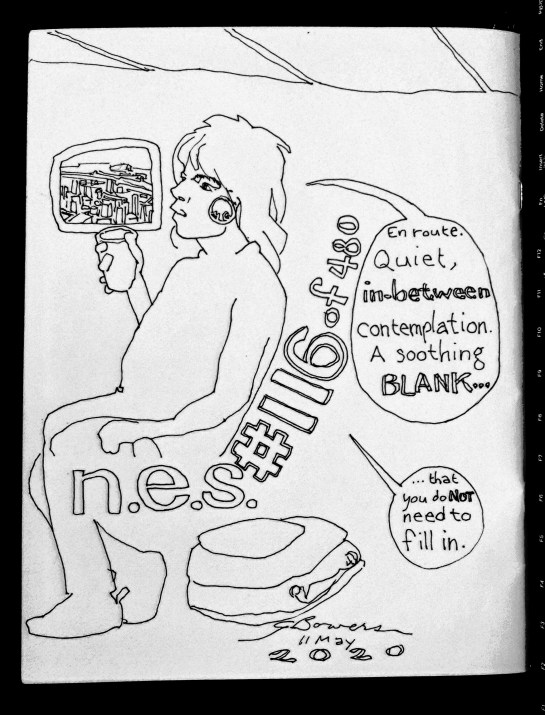 En route.
Quiet,
in-between
contemplation.
A soothing
BLANK...
... that
you do NOT
need to
fill in.
n.e.s. #116 of 480
CBowers
11 May
2020